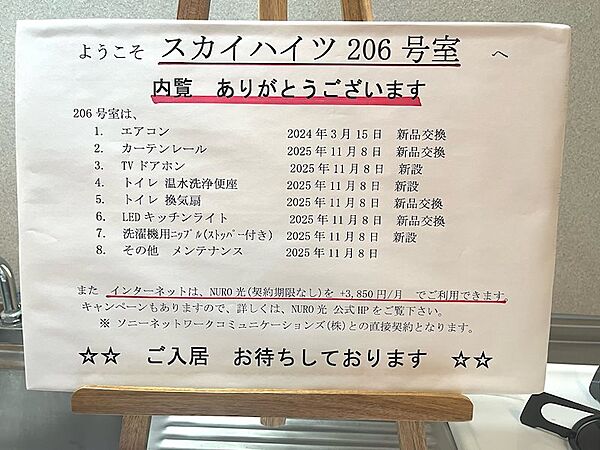 ようこそ スカイハイツ 206 号室 へ
内覧 ありがとうございます
206 号室は、
1. エアコン 2024 年 3 月 15 日 新品交換
2. カーテンレール 2025 年 11 月 8 日 新品交換
3. TV ドアホン 2025 年 11 月 8 日 新設
4. トイレ 温水洗浄便座 2025 年 11 月 8 日 新設
5. トイレ 換気扇 2025 年 11 月 8 日 新品交換
6. LED キッチンライト 2025 年 11 月 8 日 新品交換
7. 洗濯機用ﾆｯﾌﾟﾙ(ｽﾄｯﾊﾟｰ付き) 2025 年 11 月 8 日 新設
8. その他 メンテナンス 2025 年 11 月 8 日
また インターネットは、NURO 光(契約期限なし)を +3,850 円/月 でご利用できます。
キャンペーンもありますので、詳しくは、NURO 光 公式 HP をご覧下さい。
※ ソニーネットワークコミュニケーションズ(株)との直接契約となります。
☆☆ ご入居 お待ちしております ☆☆